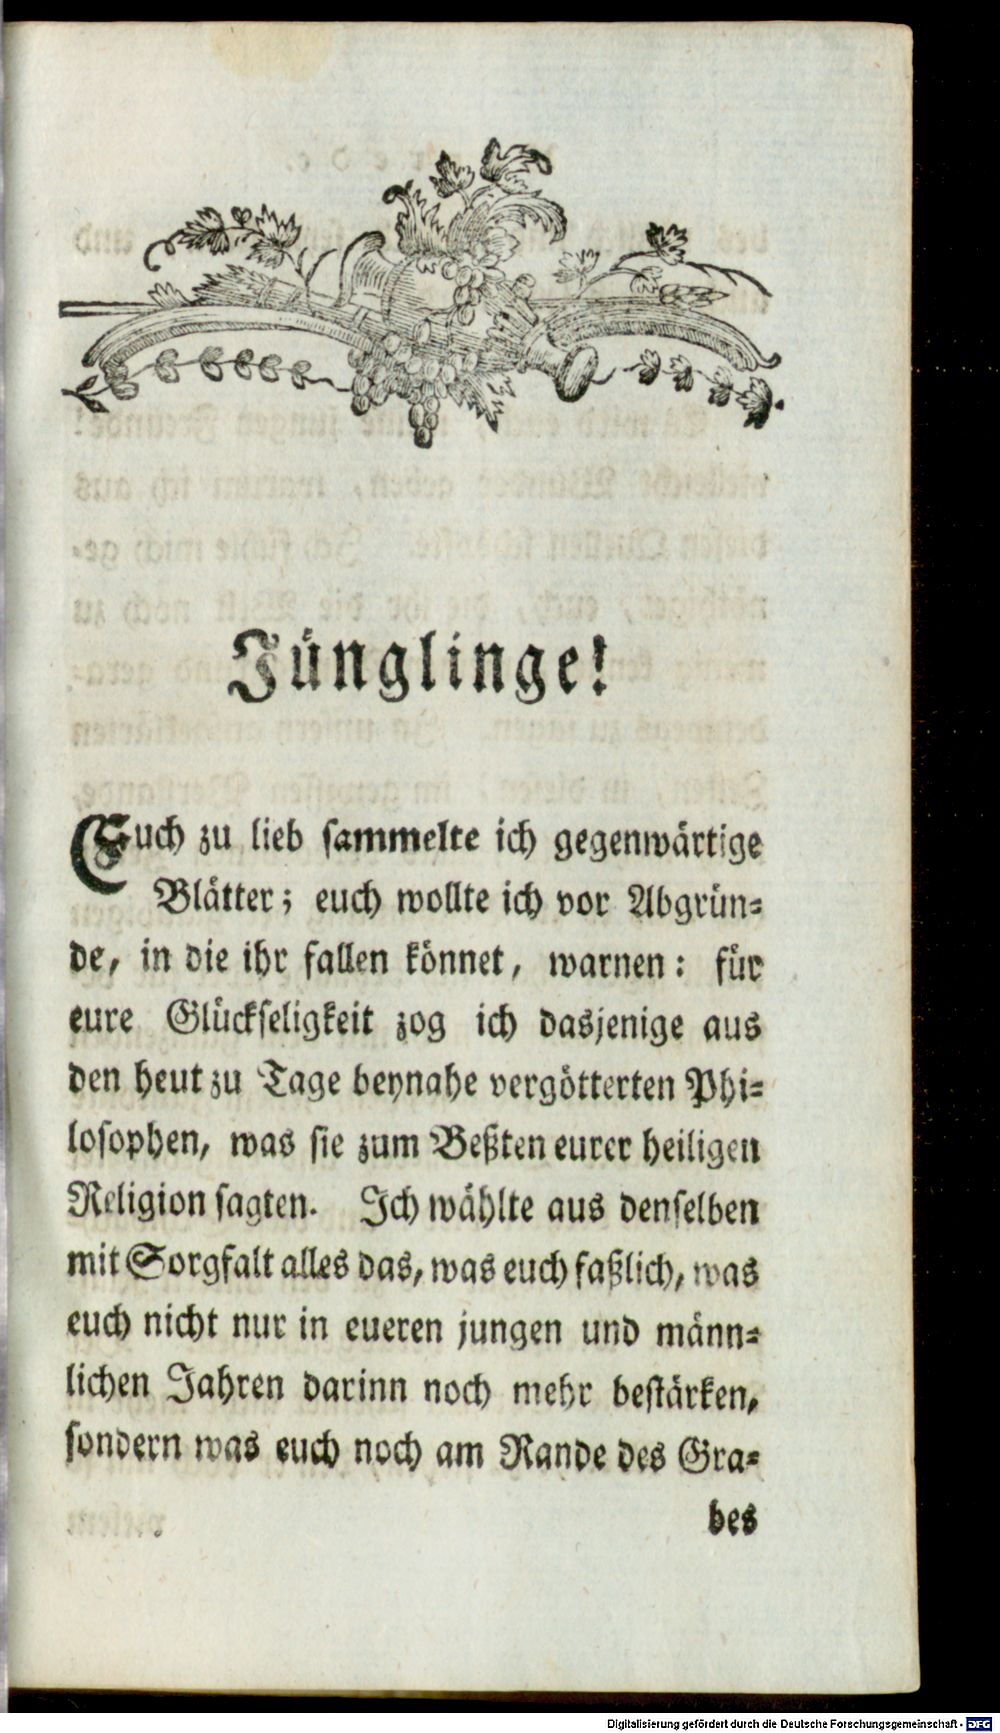 Jünglinge!
Euch zu lieb sammelte ich gegenwärtige
Blätter; euch wollte ich vor Abgrün-
de, in die ihr fallen könnet, warnen: für
eure Glückseligkeit zog ich dasjenige aus
den heut zu Tage beynahe vergötterten Phi-
losophen, was sie zum Beßten eurer heiligen
Religion sagten. Ich wählte aus denselben
mit Sorgfalt alles das, was euch faßlich, was
euch nicht nur in eueren jungen und männ-
lichen Jahren darinn noch mehr bestärken,
sondern was euch noch am Rande des Gra-
bes
Digitalisierung gefördert durch die Deutsche Forschungsgemeinschaft - DFG